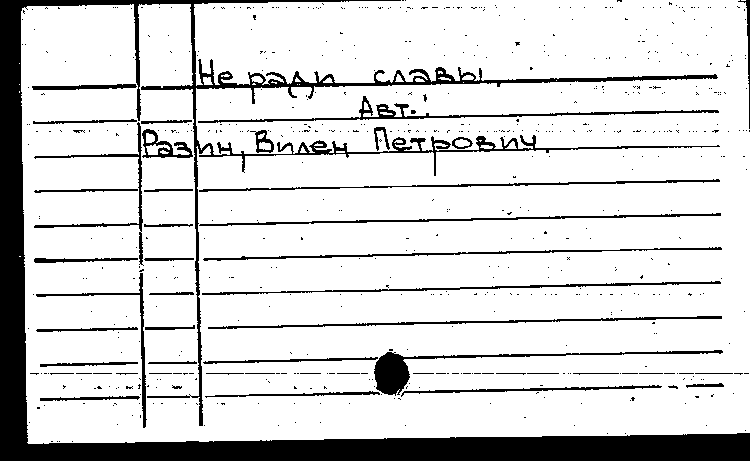 Не ради славы.
Авт.:
Разин, Вилен Петрович.